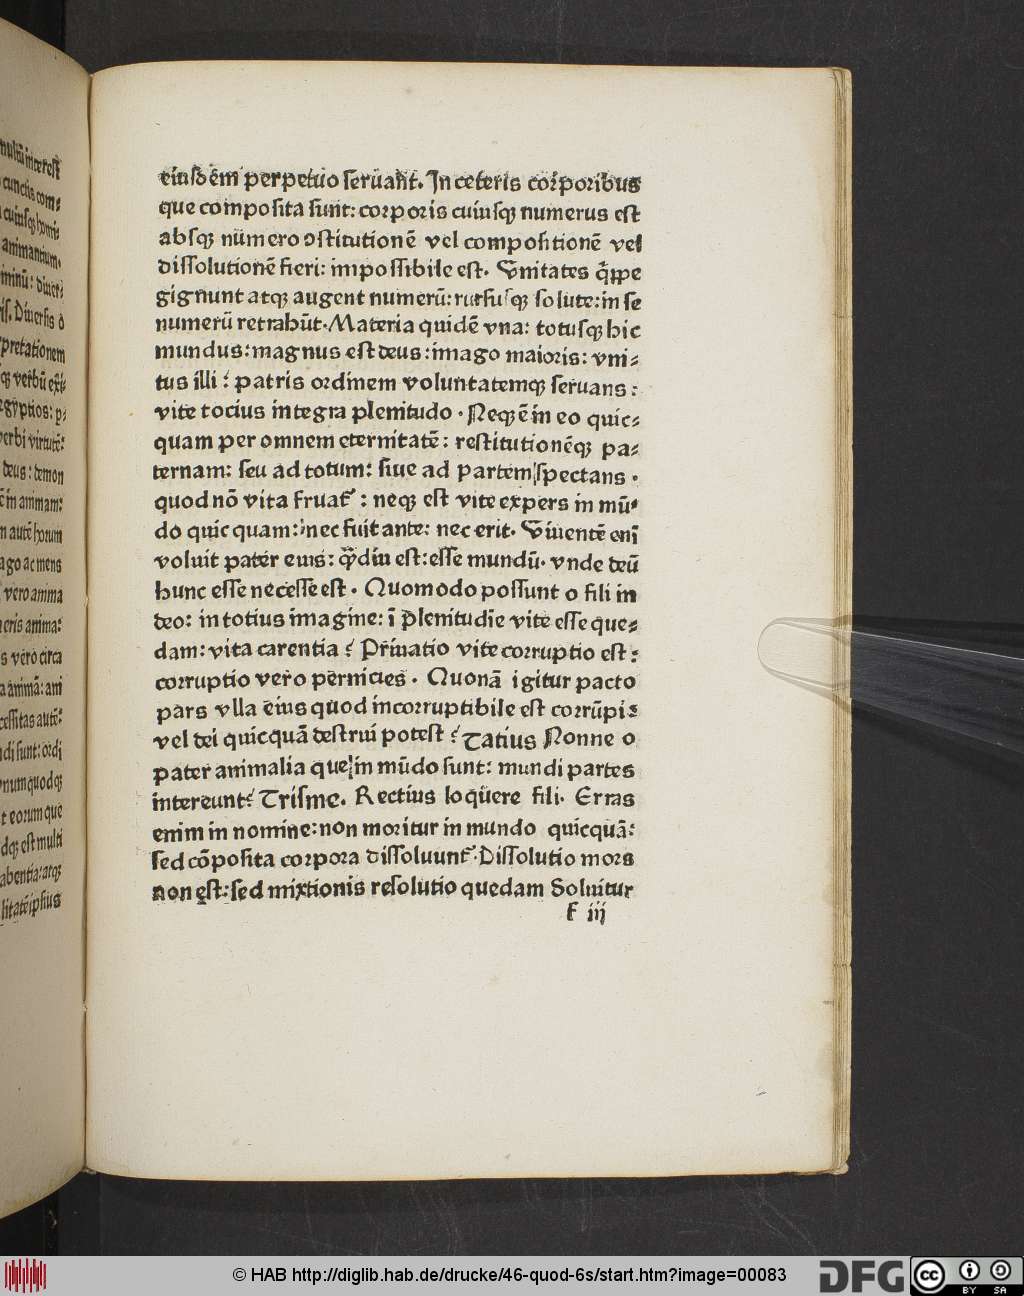 eiusdēm perpetuo seruant. In ceteris corporibus
que composita sunt: corporis cuiusqꝫ numerus est
absqꝫ numero ↄstitutionē vel compositionē vel
dissolutionē fieri: impossibile est. Vnitates q̄ppe
gignunt atqꝫ augent numerū: rursusqꝫ solute: in se
numerū retrahūt. Materia quidē vna: totusqꝫ hic
mundus: magnus est deus: imago maioris: vni⸗
tus illi: patris ordinem voluntatemqꝫ seruans:
vite tocius integra plenitudo. Neqꝫ ē in eo quic⸗
quam per omnem eternitatē: restitutionēqꝫ pa⸗
ternam: seu ad totum: siue ad partem spectans.
quod nō vita fruat᷑: neqꝫ est vite expers in mū⸗
do quicquam: nec fuit ante: nec erit. Viuentē eni̅
voluit pater eius: q̄diu est: esse mundū. vnde deū
hunc esse necesse est. Quomodo possunt o fili in
deo: in totius imagine: ī plenitudīe vite esse que⸗
dam: vita carentia? Priuatio vite corruptio est:
corruptio vero pernicies. Quonā igitur pacto
pars vlla eius quod incorruptibile est corrūpi:
vel dei quicquā destrui potest? Tatius Nonne o
pater animalia que in mūdo sunt: mundi partes
intereunt? Trisme. Rectius loquere fili. Erras
enim in nomine: non moritur in mundo quicquā:
sed cōposita corpora dissoluunt᷑. Dissolutio mors
non est: sed mixtionis resolutio quedam Soluitur
f iii
multū interest
cunctis com⸗
cuiusqꝫ homi⸗
animantium.
minū: diuer⸗
is. Diuersis d
pretationem
qꝫ verbū exi⸗
egyptios: p⸗
verbi virtutē:
deus: demon
ē in animam:
n autē horum
ago ac mens
vero anima
neris anima:
s vero circa
a animā: ani
cessitas autē:
di sunt: ordi
num quodqꝫ
t eorum que
dqꝫ est multi
abentia: atqꝫ
litatē ipsius
© HAB http://diglib.hab.de/drucke/46-quod-6s/start.htm?image=00083
DFG
cc
BY SA